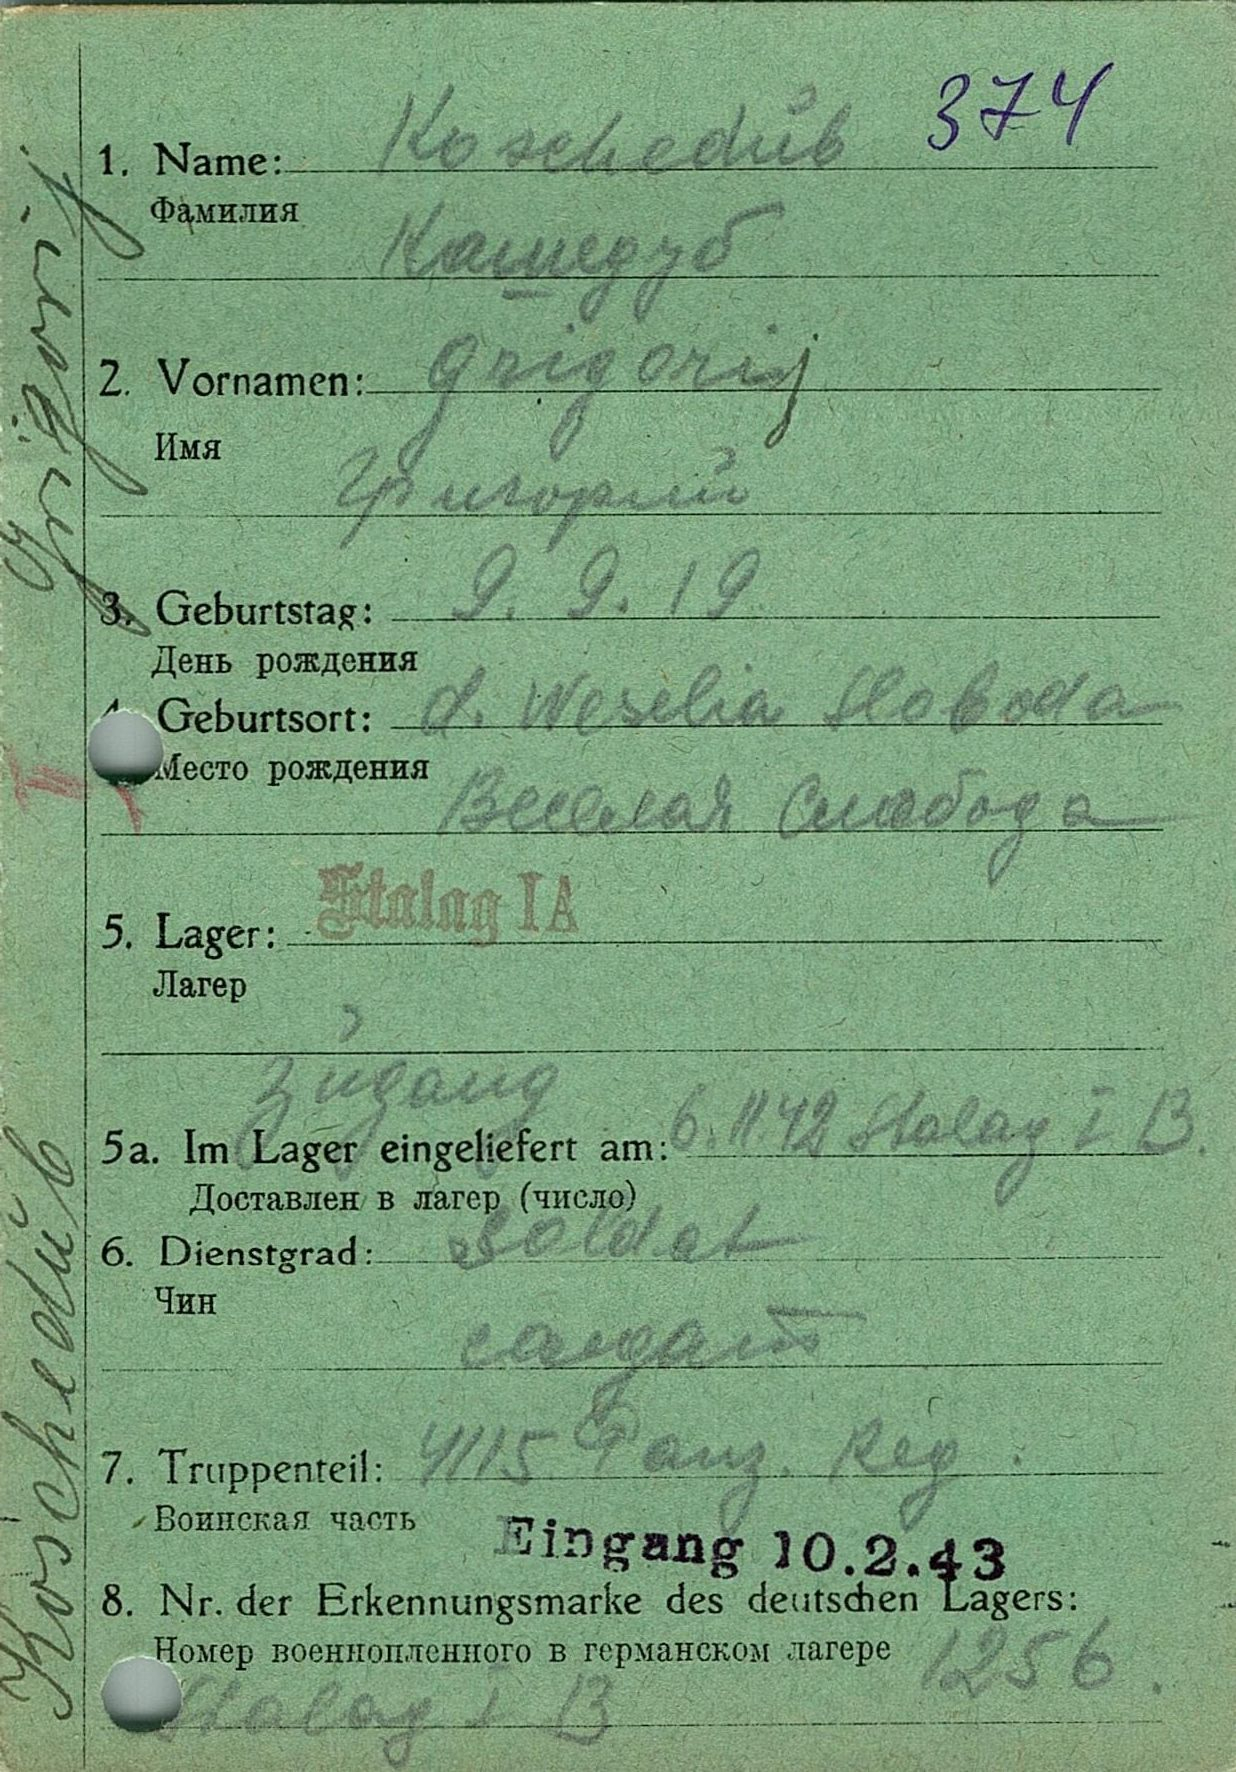 374
1. Name: Koschedúb
Фамилия
Кашедуб
2. Vornamen: Grigorij
Имя
Григорий
3. Geburtstag: 9. 9. 19
День рождения
4. Geburtsort: d. Weselia Sloboda
Место рождения
Веселая Слабода
5. Lager: Stalag IA
Лагер
Zugang
5a. Im Lager eingeliefert am: 6. 11 42 Stalag I B.
Доставлен в лагер (число)
6. Dienstgrad: Soldat
Чин
салдат
7. Truppenteil: 4115 Panz. Reg.
Воинская часть
Eingang 10.2.43
8. Nr. der Erkennungsmarke des deutschen Lagers:
Номер военнопленного в германском лагере 1256.
Stalag I B
Koschedúb Grigorij